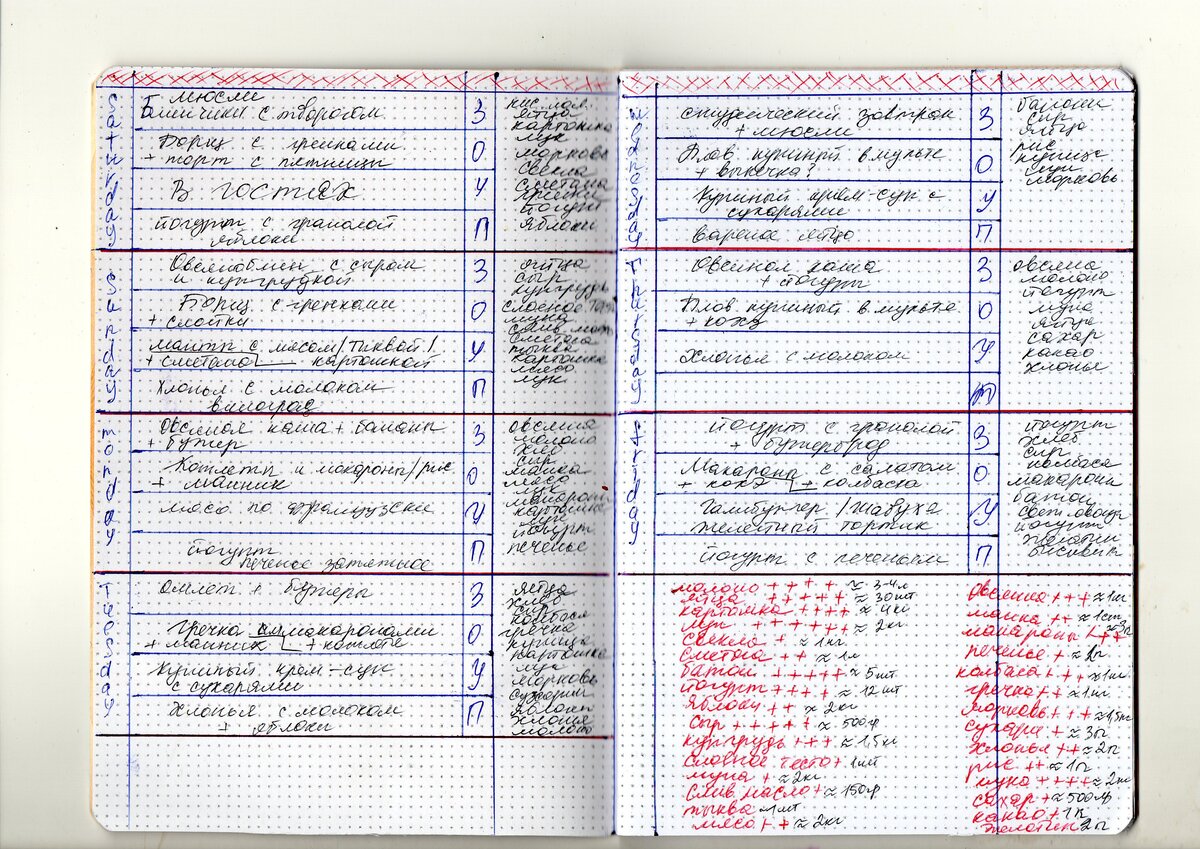 Saturday
мюсли
Блинчики с творогом
З
Борщ с гренками
+ торт с пятницы
О
В гостях
У
йогурт с гранолой
яблоки
П
кис. мол.
яйца
картошка
лук
морковь
свекла
сметана
гренки
йогурт
яблоки
Sunday
Овсяноблин с сыром
и кур.грудкой
З
Борщ с гренками
+ слойки
О
манты с мясом/тыквой/
+ сметана картошкой
У
Хлопья с молоком
виноград
П
яйца
сыр
кур.грудь
слоеное тесто
мука
слив. масло
сметана
тыква
картошка
мясо
лук
monday
Овсяная каша + бананы
+ бутер
З
Котлеты и макароны/рис
+ манник
О
мясо по французски
У
йогурт
печенье затяжное
П
овсянка
молоко
хлеб
сыр
манка
мясо
лук
макароны
картошка
лук
йогурт
печенье
Tuesday
Омлет + бутеры
З
Гречка с макаронами
+ манник + котлета
О
Куриный крем-суп
с сухарями
У
Хлопья с молоком
+ яблоки
П
яйца
хлеб
сыр
колбаса
гречка
курица
картошка
лук
морковь
сухарики
яблоки
хлопья
молоко
Wednesday
студенческий завтрак
+ мюсли
З
Плов куриный в мульте
+ выпечка?
О
Куриный крем-суп с
сухарями
У
вареное яйцо
П
батон
сыр
яйцо
рис
курица
лук
морковь
Thursday
Овсяная каша
+ йогурт
З
Плов куриный в мульте
+ кекс
О
Хлопья с молоком
У
П
овсянка
молоко
йогурт
мука
яйца
сахар
какао
хлопья
friday
йогурт с гранолой
+ бутерброд
З
Макароны с салатом
+ кекс + колбаса
О
Гамбургер /шавуха
желейный тортик
У
йогурт с печеньем
П
йогурт
хлеб
сыр
колбаса
макароны
батон
свеж. овощи
йогурт
желатин
бисквит
молоко ++++ ≈ 3-4л
яйца +++++ ≈ 30шт
картошка ++++ ≈ 4кг
лук ++++++ ≈ 2кг
свекла + ≈ 1кг
сметана ++ ≈ 1л
батон +++++ ≈ 5шт
йогурт ++++ ≈ 12шт
яблоки ++ ≈ 2кг
сыр +++++ ≈ 500гр
кур.грудь +++ ≈ 1,5кг
слоеное тесто + 1шт
мука + ≈ 2кг
слив. масло + ≈ 150гр
тыква 1шт
мясо ++ ≈ 2кг
овсянка +++ ≈ 1п
манка ++ ≈ 1ст
макароны +++ ≈ 3п
печенье + ≈ 2п
колбаса ++ ≈ 1шт
гречка ++ ≈ 1п
морковь +++ ≈ 1,5кг
сухари + ≈ 3п
хлопья ++ ≈ 2п
рис ++ ≈ 1п
мука ++++ ≈ 2кг
сахар + ≈ 500гр
какао + 1п
желатин 2п